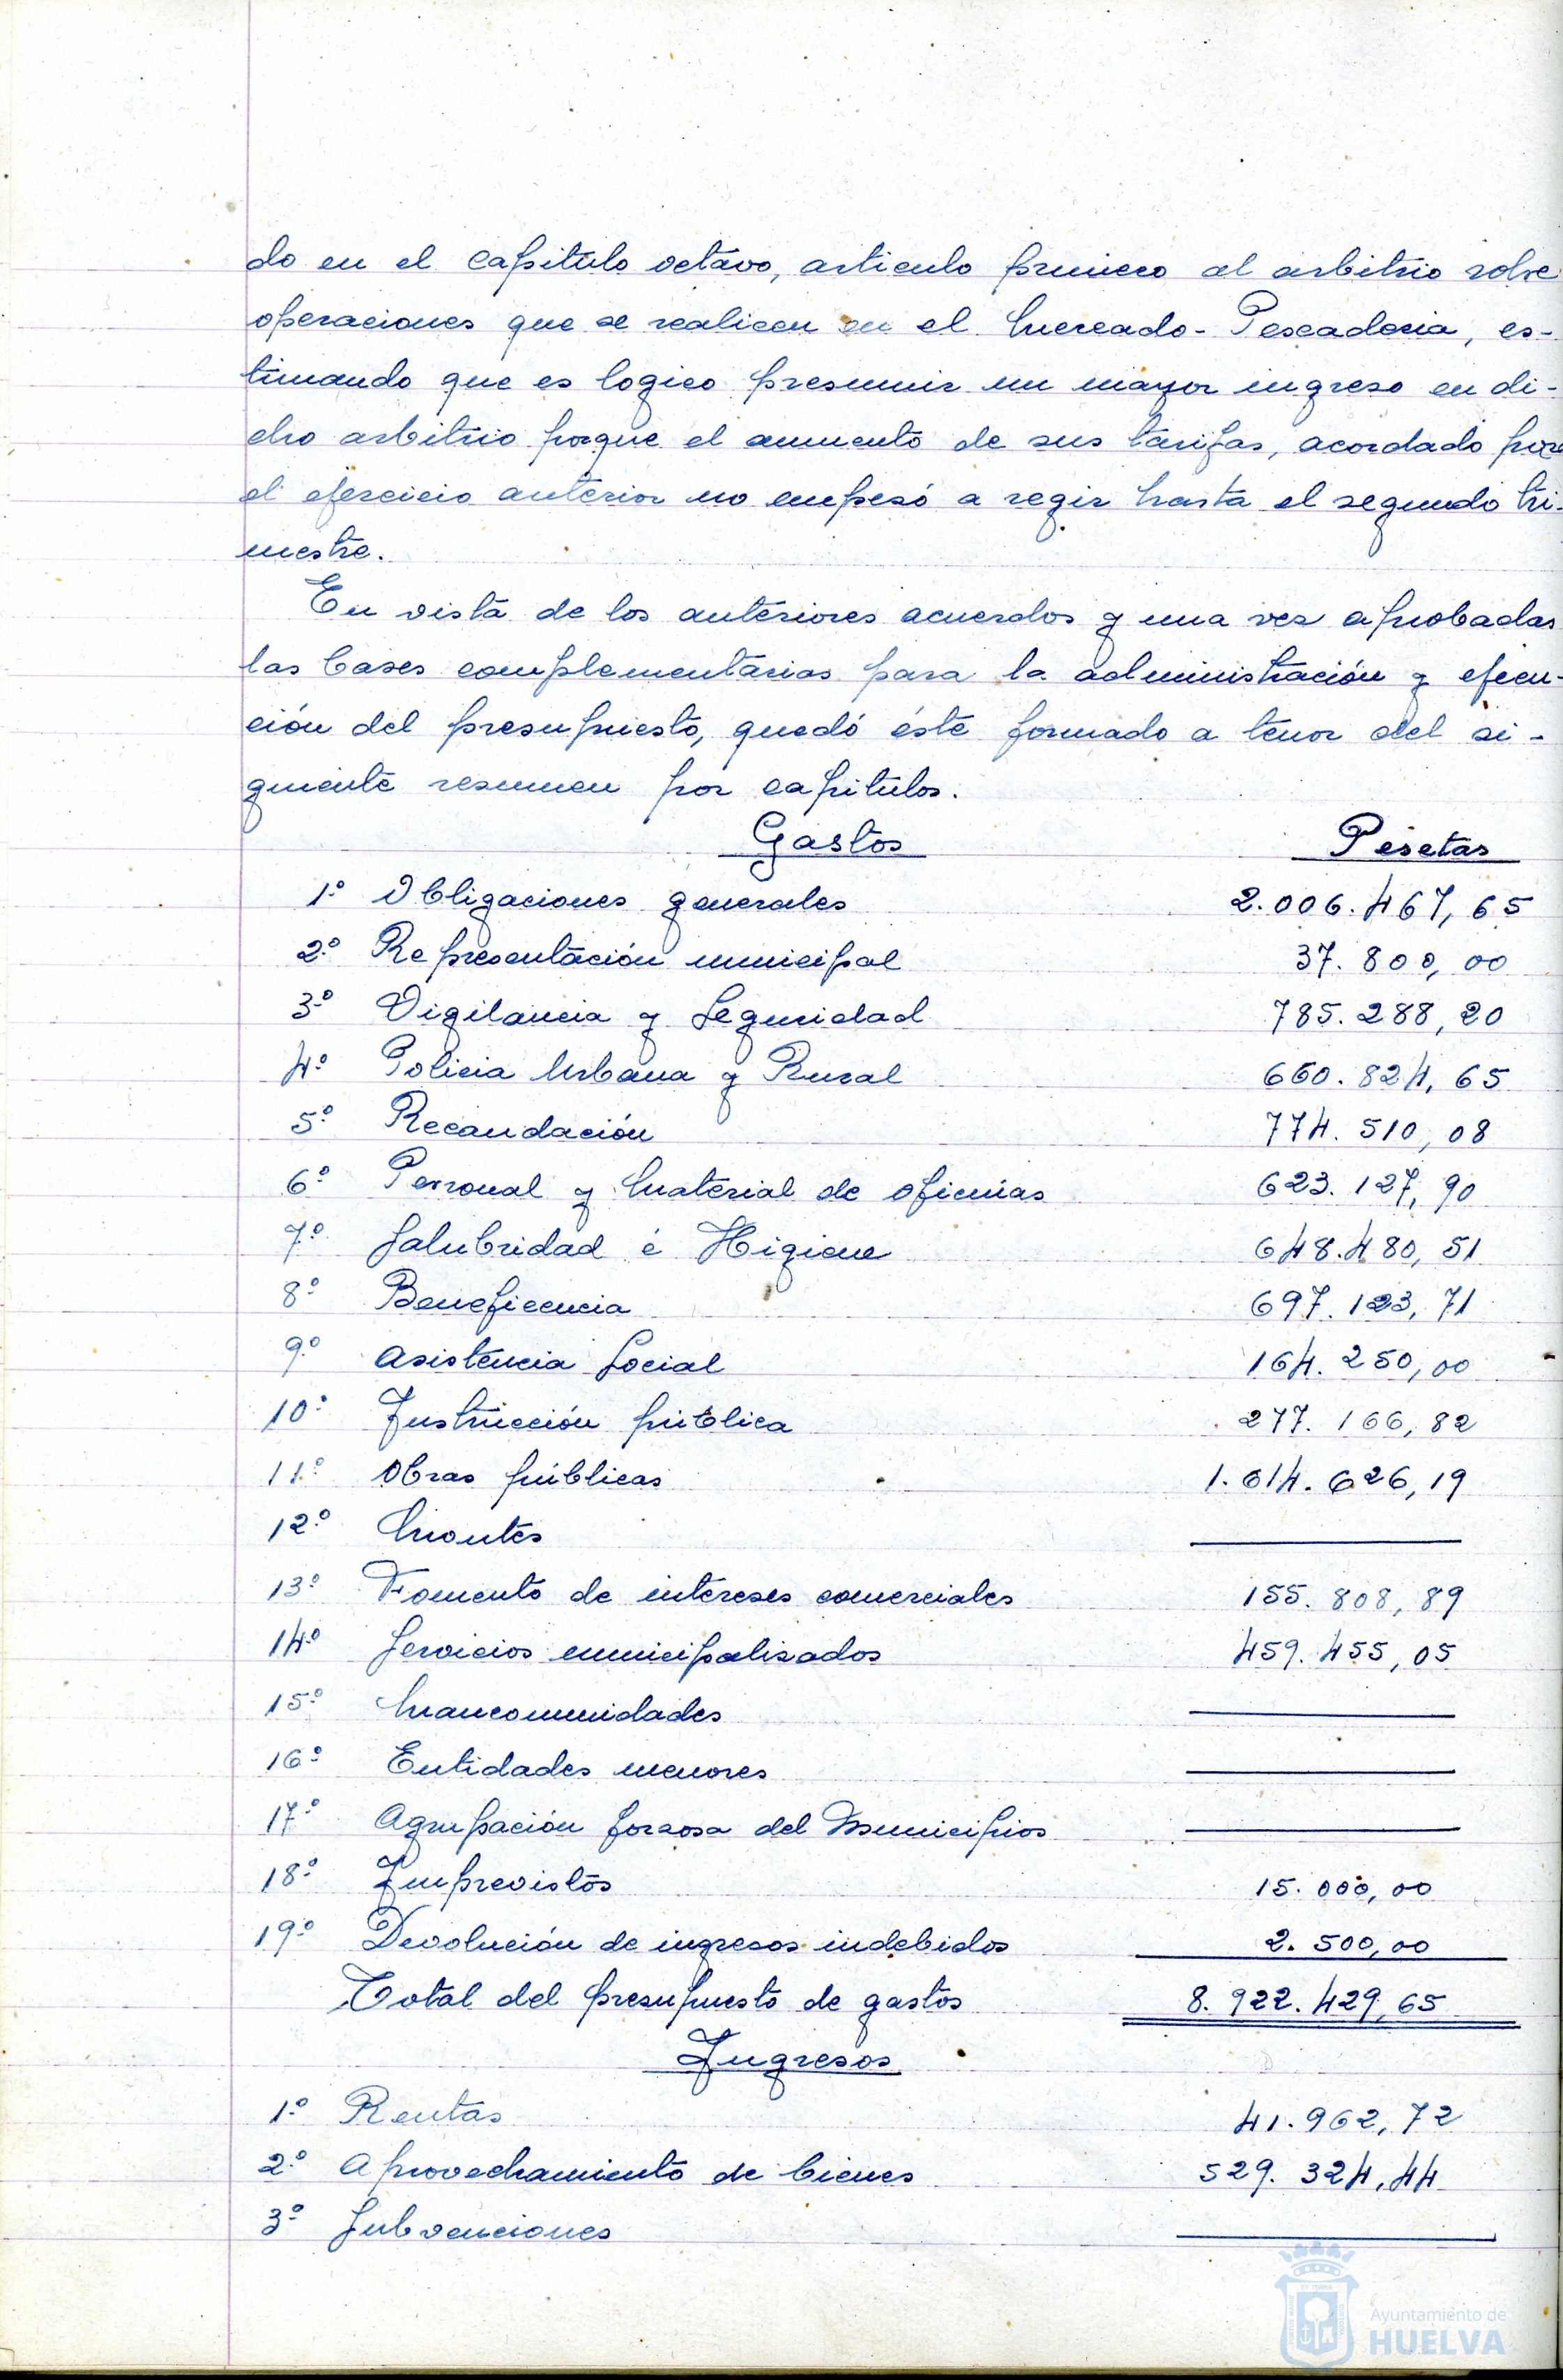 do en el capitulo octavo, articulo primero al arbitrio sobre
operaciones que se realicen en el Mercado-Pescaderia, es-
timando que es logico presumir un mayor ingreso en di-
cho arbitrio porque el aumento de sus tarifas, acordado para
el ejercicio anterior no empesó a regir hasta el segundo tri-
mestre.
En vista de los anteriores acuerdos y una vez aprobadas
las bases complementarias para la administración y ejecu-
ción del presupuesto, quedó éste formado a tenor del si-
guiente resumen por capitulos.
Gastos Pesetas
1º Obligaciones generales 2.006.467,65
2º Representación municipal 37.800,00
3º Vigilancia y Seguridad 785.288,20
4º Policia Urbana y Rural 660.824,65
5º Recaudación 774.510,08
6º Personal y Material de oficinas 623.127,90
7º Salubridad é Higiene 648.480,51
8º Beneficencia 697.123,71
9º Asistencia Social 164.250,00
10º Instrucción pública 277.166,82
11º Obras públicas 1.614.626,19
12º Montes
13º Fomento de intereses comerciales 155.808,89
14º Servicios municipalizados 459.455,05
15º Mancomunidades
16º Entidades menores
17º Agrupación forzosa del Municipios
18º Imprevistos 15.000,00
19º Devolución de ingresos indebidos 2.500,00
Total del presupuesto de gastos 8.922.429,65
Ingresos
1º Rentas 41.962,72
2º Aprovechamiento de bienes 529.324,44
3º Subvenciones
Ayuntamiento de
HUELVA